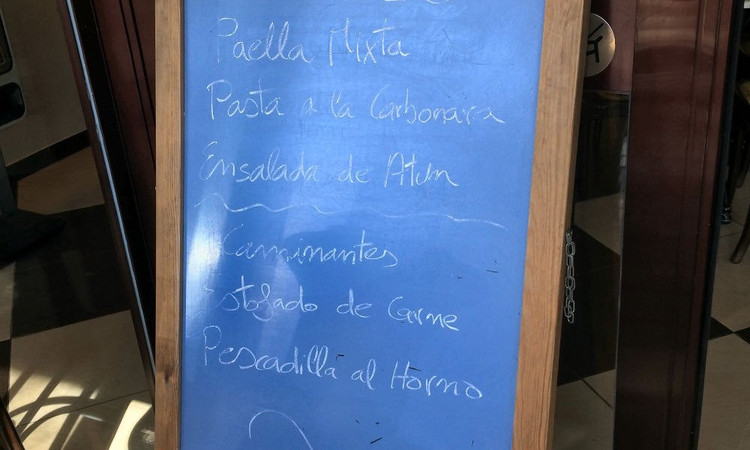 Paella Mixta
Pasta a la Carbonara
Ensalada de Atun
Caminantes
Estofado de Carne
Pescadilla al Horno